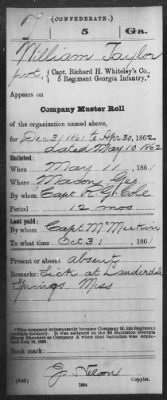 T (CONFEDERATE.)
5 Ga.
William Taylor
Pvt., Capt. Richard H. Whiteley's Co.,
5 Regiment Georgia Infantry.
Appears on
Company Muster Roll
of the organization named above,
for Dec 31, 1861 to Apr 30, 1862
dated May 10 1862
Enlisted:
When May 11, 1861
Where Macon, Ga
By whom Capt
Period 12 mos
Last paid:
By whom Capt
To what time Oct 31, 1861
Present or absent absent
Remarks: Sick at Lauderdale
Springs Miss
Book mark:
Copyist.